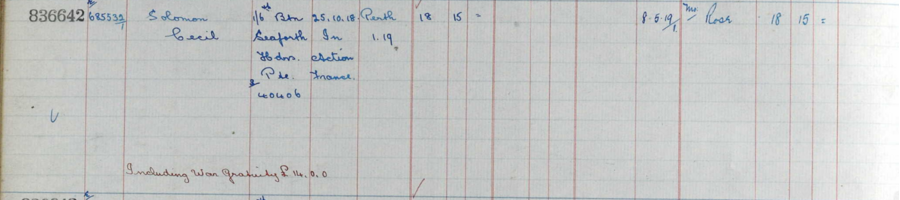 836642 685532/1 Solomon 1/6th Btn 25.10.18. Perth 18 15 = 8.5.19/1. Mo Rosa 18 15 =
Cecil Seaforth In 1.19.
Hdrs. Action
Pte. France.
40406
Including War Gratuity £ 14.0.0